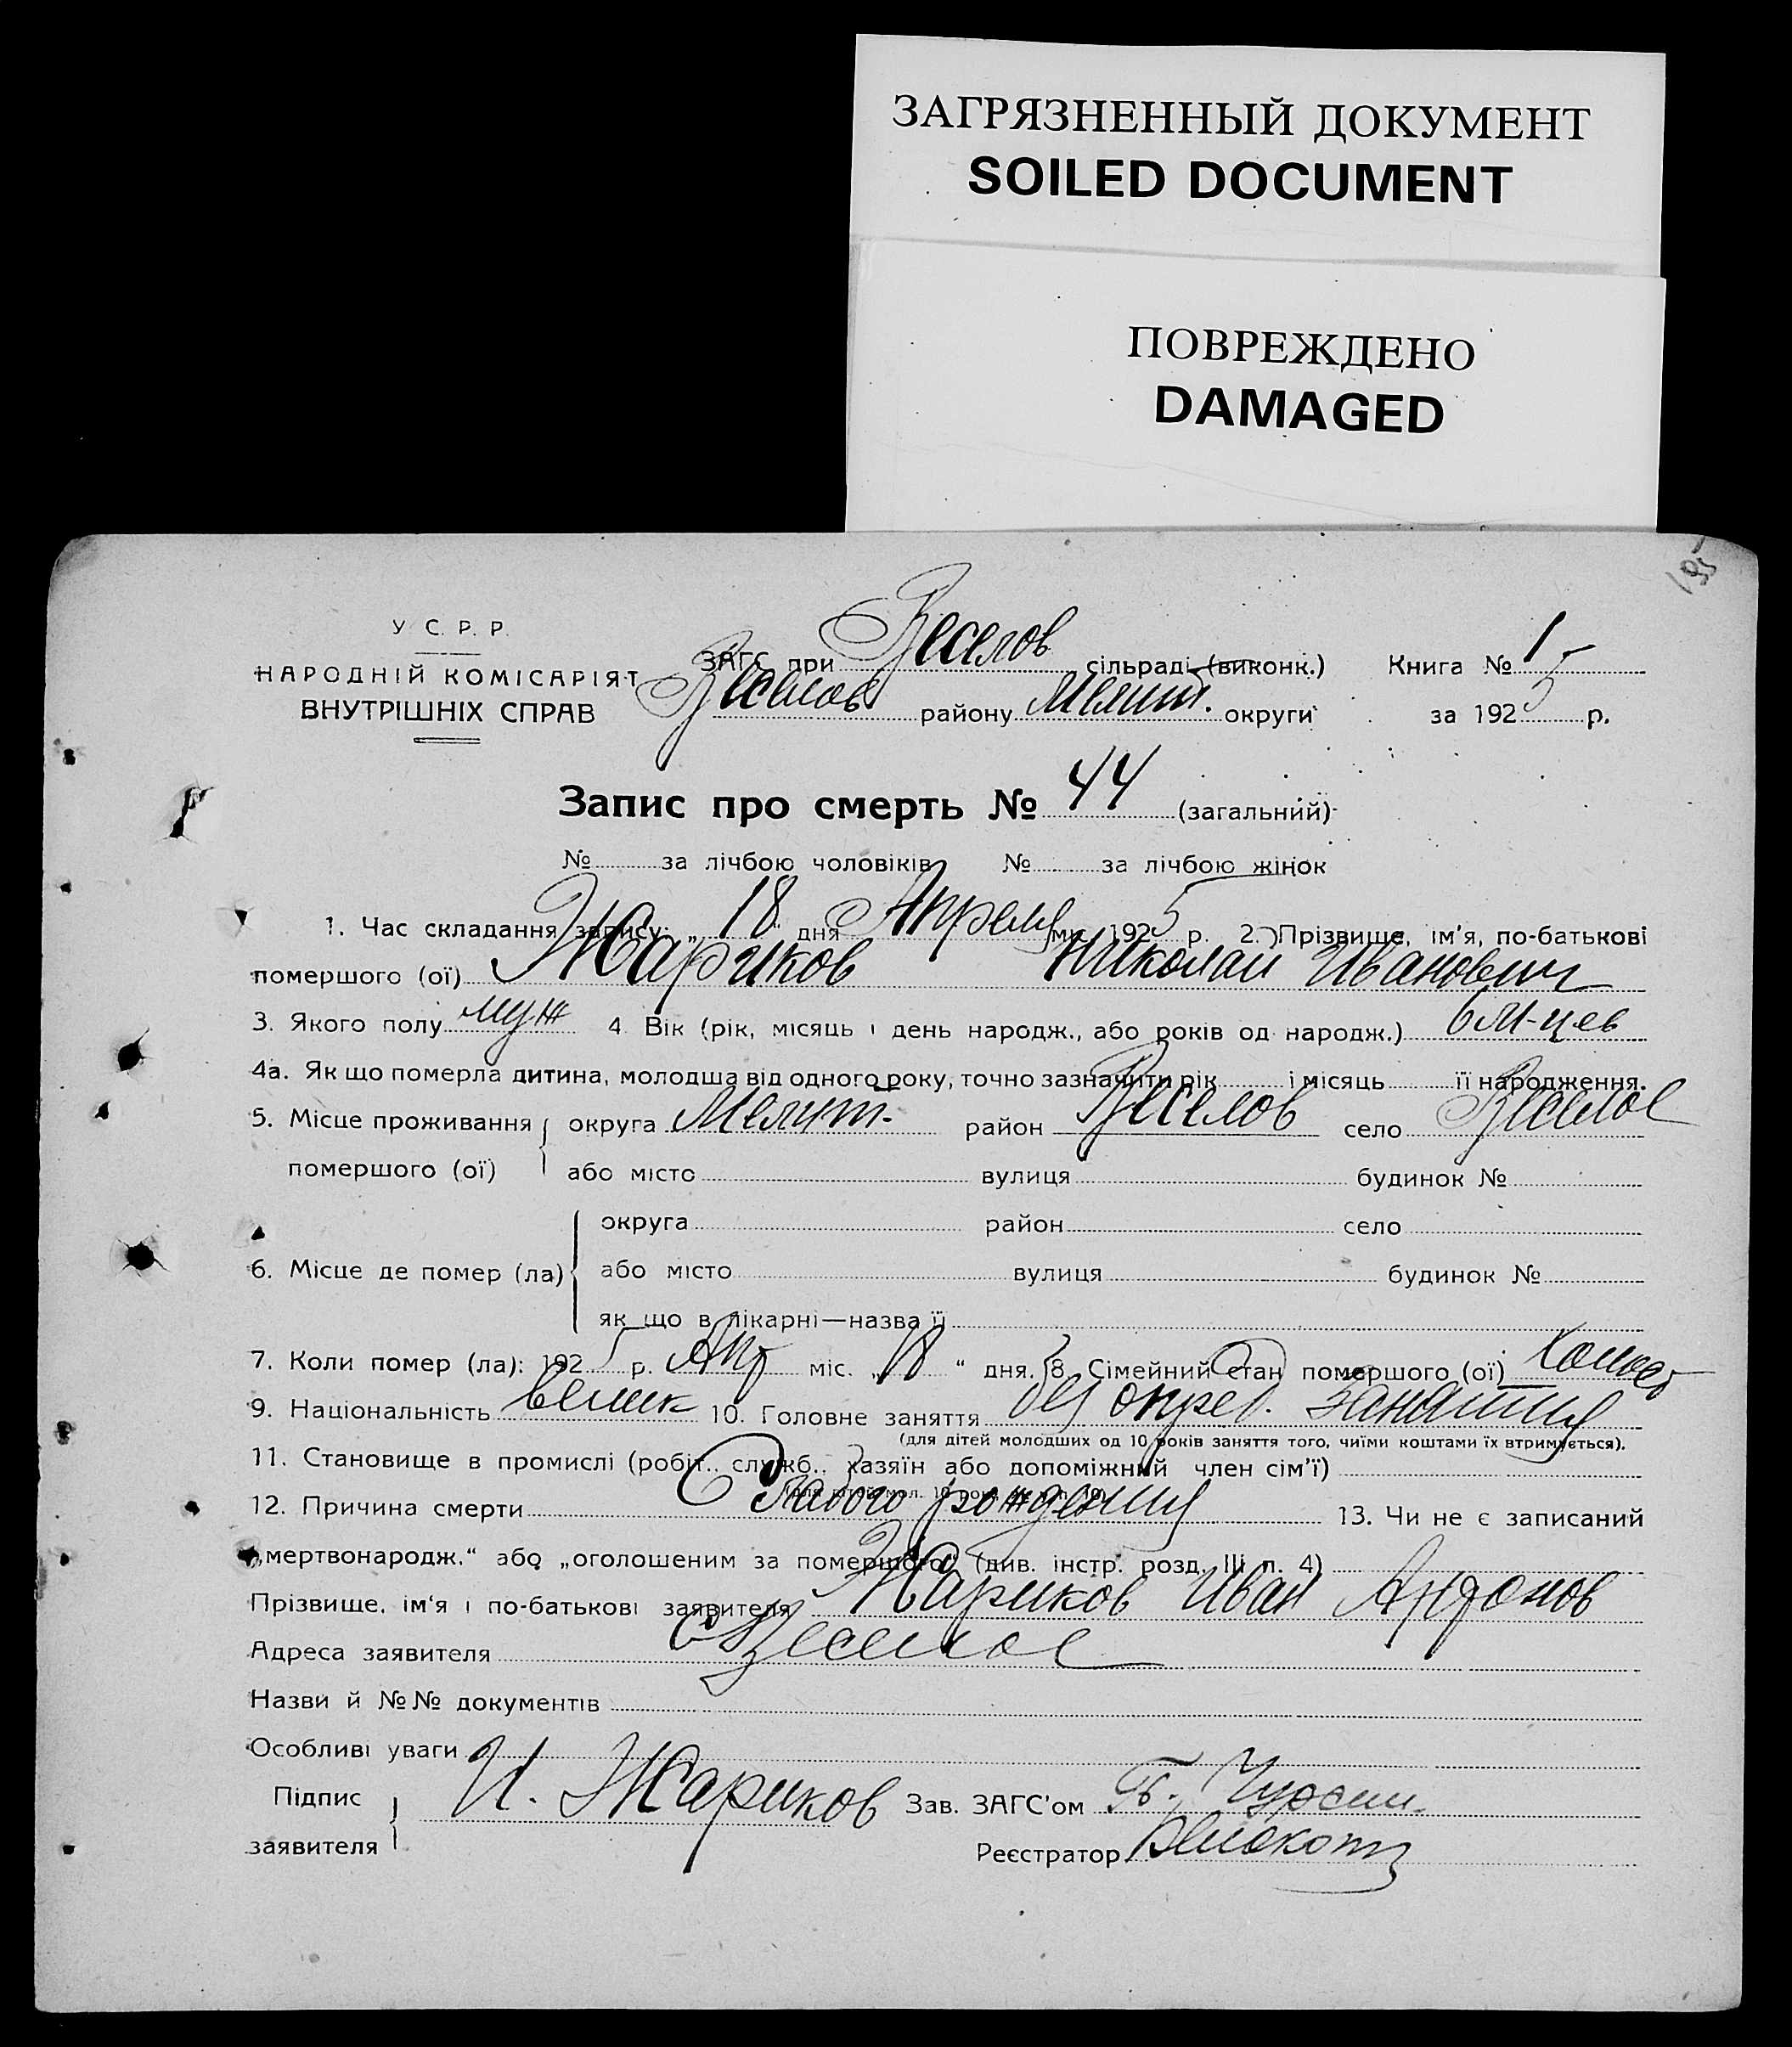 ЗАГРЯЗНЕННЫЙ ДОКУМЕНТ
SOILED DOCUMENT
ПОВРЕЖДЕНО
DAMAGED
195
У С. Р. Р.
НАРОДНІЙ КОМІСАРІЯТ
ВНУТРІШНІХ СПРАВ
ЗАГС при Веселов сільраді (виконк.) Книга № 1
Веселов району Мелит. округи за 1925 р.
Запис про смерть № 44 (загальний)
№ за лічбою чоловіків № за лічбою жінок
1. Час складання запису: „ 18 " дня Апреля м. 1925 р. 2. Прізвище, ім'я, по-батькові
помершого (ої) Жариков Николай Иванович
3. Якого полу муж 4. Вік (рік, місяць і день народж., або років од народж.) 6 м-цев
4а. Як що померла дитина, молодша від одного року, точно зазначити рік і місяць її народження.
5. Місце проживання округа Мелит. район Веселов село Веселое
помершого (ої) або місто вулиця будинок №
округа район село
6. Місце де помер (ла) або місто вулиця будинок №
як що в лікарні—назва її
7. Коли помер (ла): 1925 р. Апр міс. „ 18 “ дня. 8. Сімейний стан помершого (ої) Холост
9. Національність велик 10. Головне заняття без опред. занятия
(для дітей молодших од 10 років заняття того, чиїми коштами їх втримується).
11. Становище в промислі (робіт., служб., хазяїн або допоміжний член сім'ї)
12. Причина смерти С рождения 13. Чи не є записаний
„мертвонародж.“ або „оголошеним за помершого“ (див. інстр. розд. III п. 4)
Прізвище, ім'я і по-батькові заявителя Жариков Иван
Адреса заявителя с Веселое
Назви й №№ документів
Особливі уваги
Підпис
заявителя И. Жариков Зав. ЗАГС'ом
Реєстратор